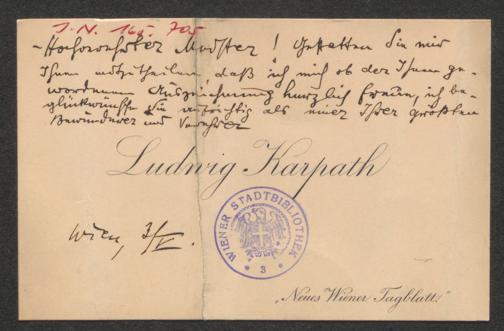 I. N. 165.705
Hochverehrter Meister! Gestatten Sie mir
Ihnen mitzutheilen, daß ich mich ob der Ihnen ge-
wordenen Auszeichnung herzlich freue, ich be-
glückwünsche Sie aufrichtig als einer Ihrer größten
Bewunderer und Verehrer
Ludwig Karpath
Wien, 3/V.
WIENER STADTBIBLIOTHEK
3
„Neues Wiener Tagblatt.“